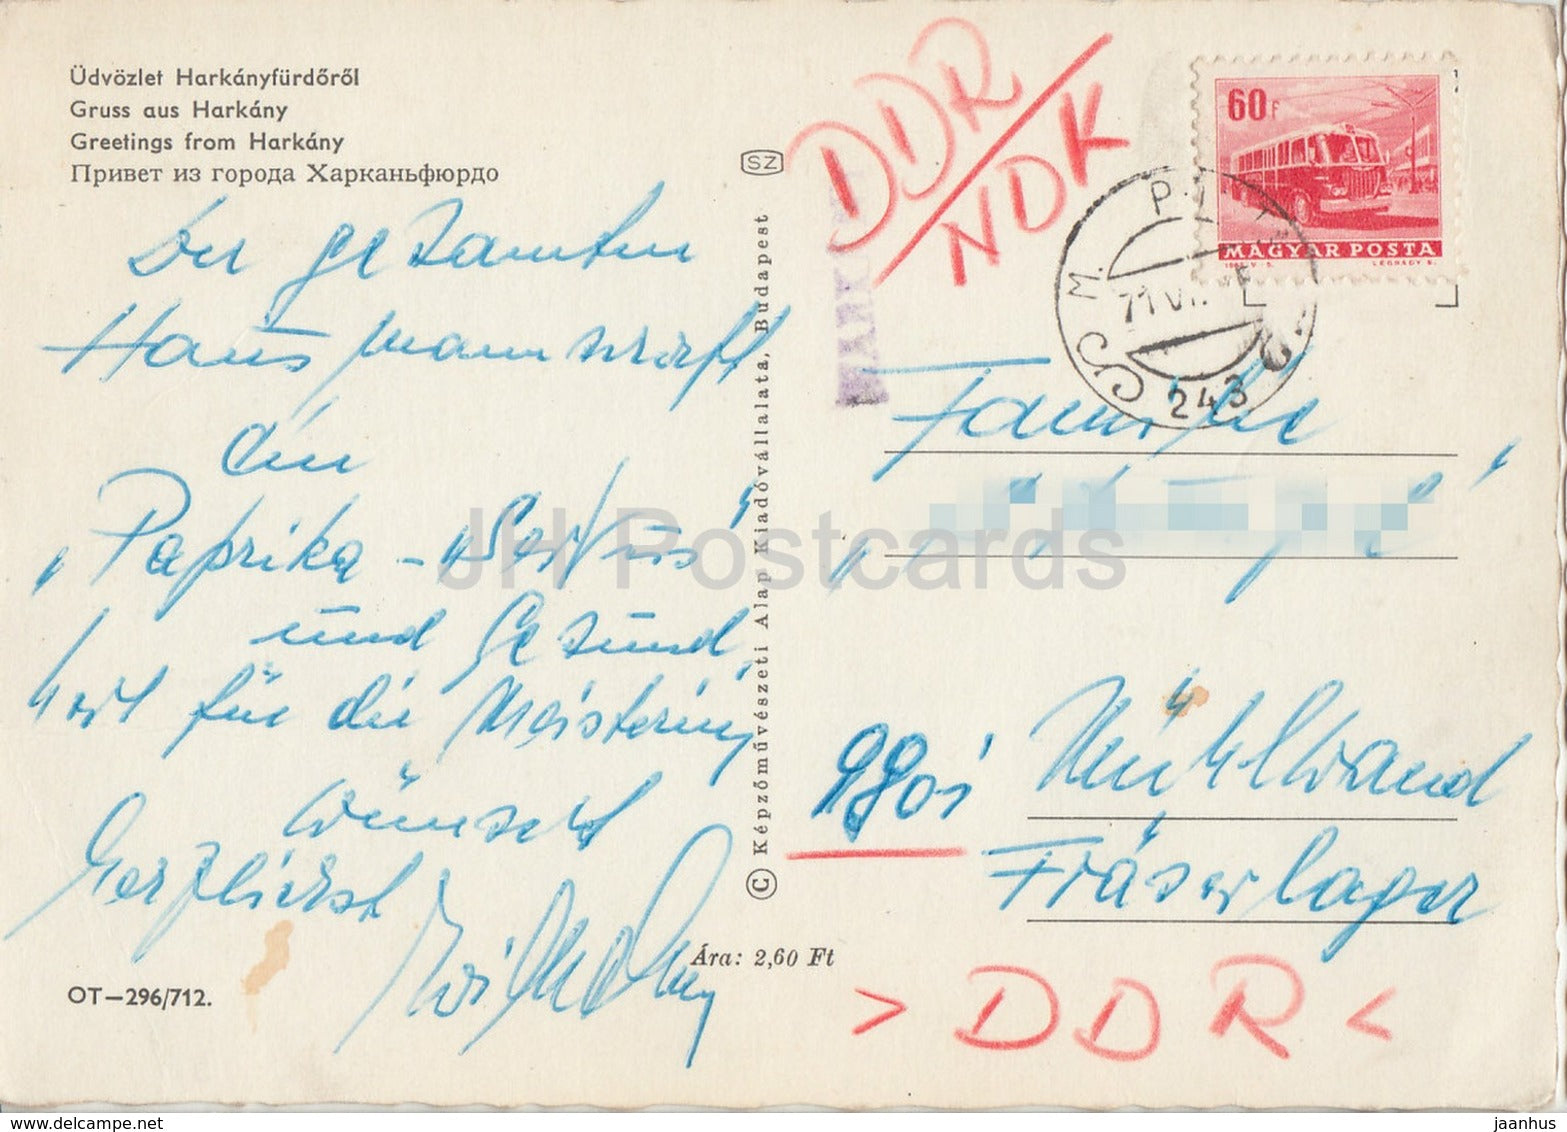 Üdvözlet Harkányfürdőről
Gruss aus Harkány
Greetings from Harkány
Привет из города Харканьфюрдо
Der gesamten
Hausmannschaft
ein
„Paprika-Servus“
und Gesund
heit für die Meisterin,
wünscht
Herzlichst
OT—296/712.
SZ
© Képzőművészeti Alap Kiadóvállalata, Budapest
Ára: 2,60 Ft
DDR
NDK
60F
MAGYAR POSTA
1963 V. S.
LÉGRÁDY S.
71 VI.
243
Familie
9801 Mühlwand
Fräserlager
> DDR <
JH Postcards
www.delcampe.net
jaanhus